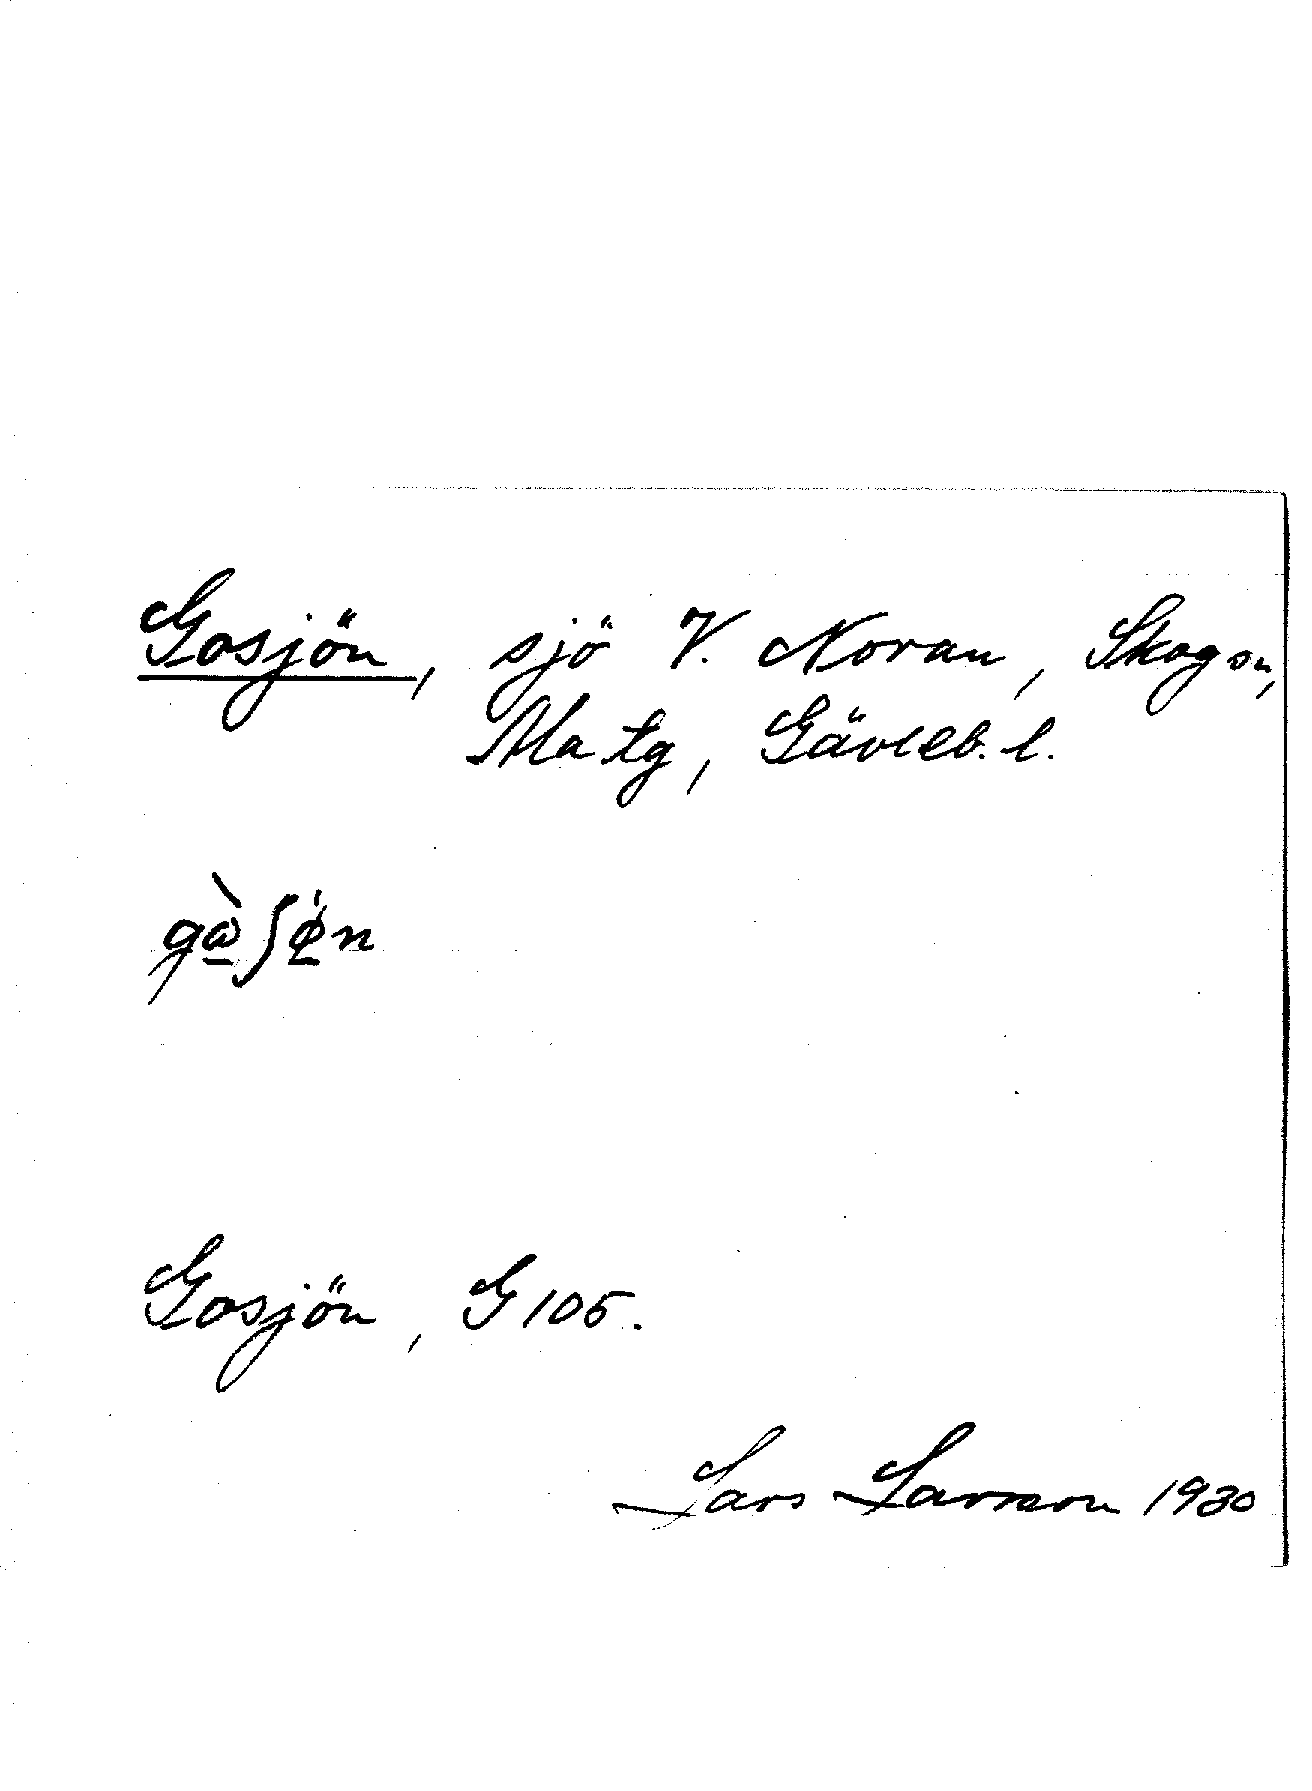 Gosjön, sjö V. Noran, Skogsn,
Ma tg, Gävleb. l.
gὼ̱ʃǿ̱n
Gosjön, G 105.
Lars Larsson 1930